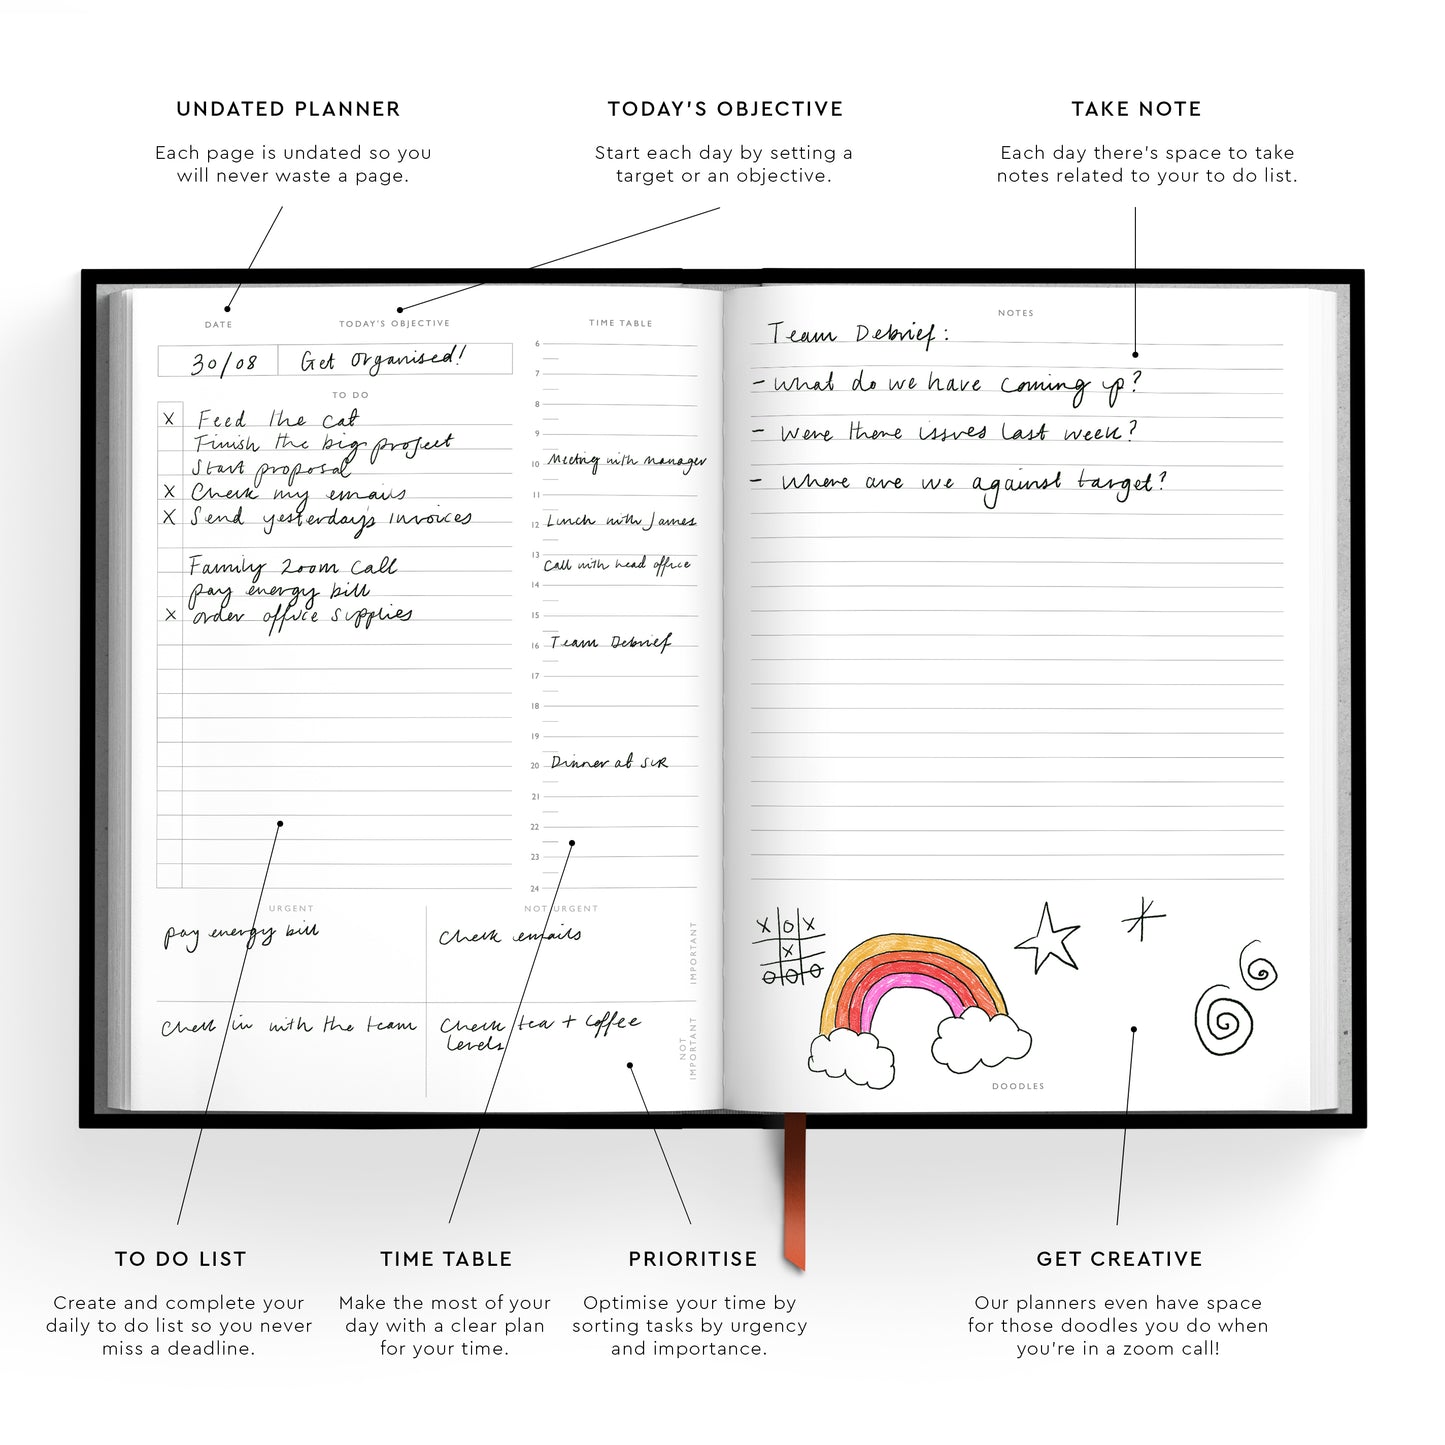 UNDATED PLANNER
Each page is undated so you
will never waste a page.
TODAY'S OBJECTIVE
Start each day by setting a
target or an objective.
TAKE NOTE
Each day there's space to take
notes related to your to do list.
DATE
TODAY'S OBJECTIVE
30/08
Get organised!
TO DO
X Feed the cat
Finish the big project
Start proposal
X Check my emails
X Send yesterday's invoices
Family zoom call
pay energy bill
X order office supplies
TIME TABLE
6
7
8
9
10 Meeting with manager
11
12 Lunch with James
13 Call with head office
14
15
16 Team Debrief
17
18
19
20 Dinner at SUR
21
22
23
24
URGENT
NOT URGENT
pay energy bill
Check emails
IMPORTANT
Check in with the team
Check tea + coffee
levels
NOT
IMPORTANT
NOTES
Team Debrief:
- What do we have coming up?
- Were there issues last week?
- Where are we against target?
X O X
X
O O O
DOODLES
TO DO LIST
Create and complete your
daily to do list so you never
miss a deadline.
TIME TABLE
Make the most of your
day with a clear plan
for your time.
PRIORITISE
Optimise your time by
sorting tasks by urgency
and importance.
GET CREATIVE
Our planners even have space
for those doodles you do when
you're in a zoom call!